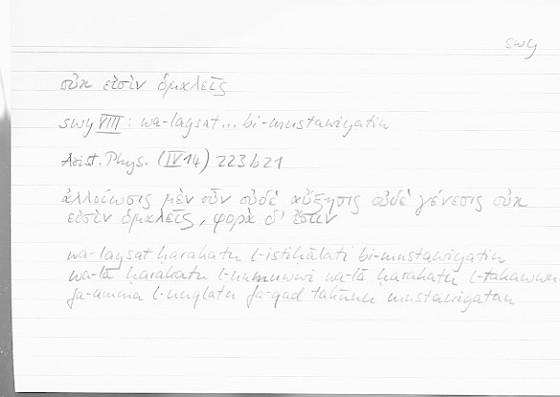 swy
οὐκ εἰσὶν ὁμαλεῖς
swy VIII: wa-laysat... bi-mustawiyatin
Arist. Phys. (IV 14) 223b21
ἀλλοίωσις μὲν οὖν οὐδὲ αὔξησις οὐδὲ γένεσις οὐκ
εἰσὶν ὁμαλεῖς, φορὰ δ' ἔστιν
wa-laysat ḥarakatu l-istiḥālati bi-mustawiyatin
wa-lā ḥarakatu l-numuwwi wa-lā ḥarakatu l-takawwu
fa-amma l-nuqlatu fa-qad takūnu mustawiyatan